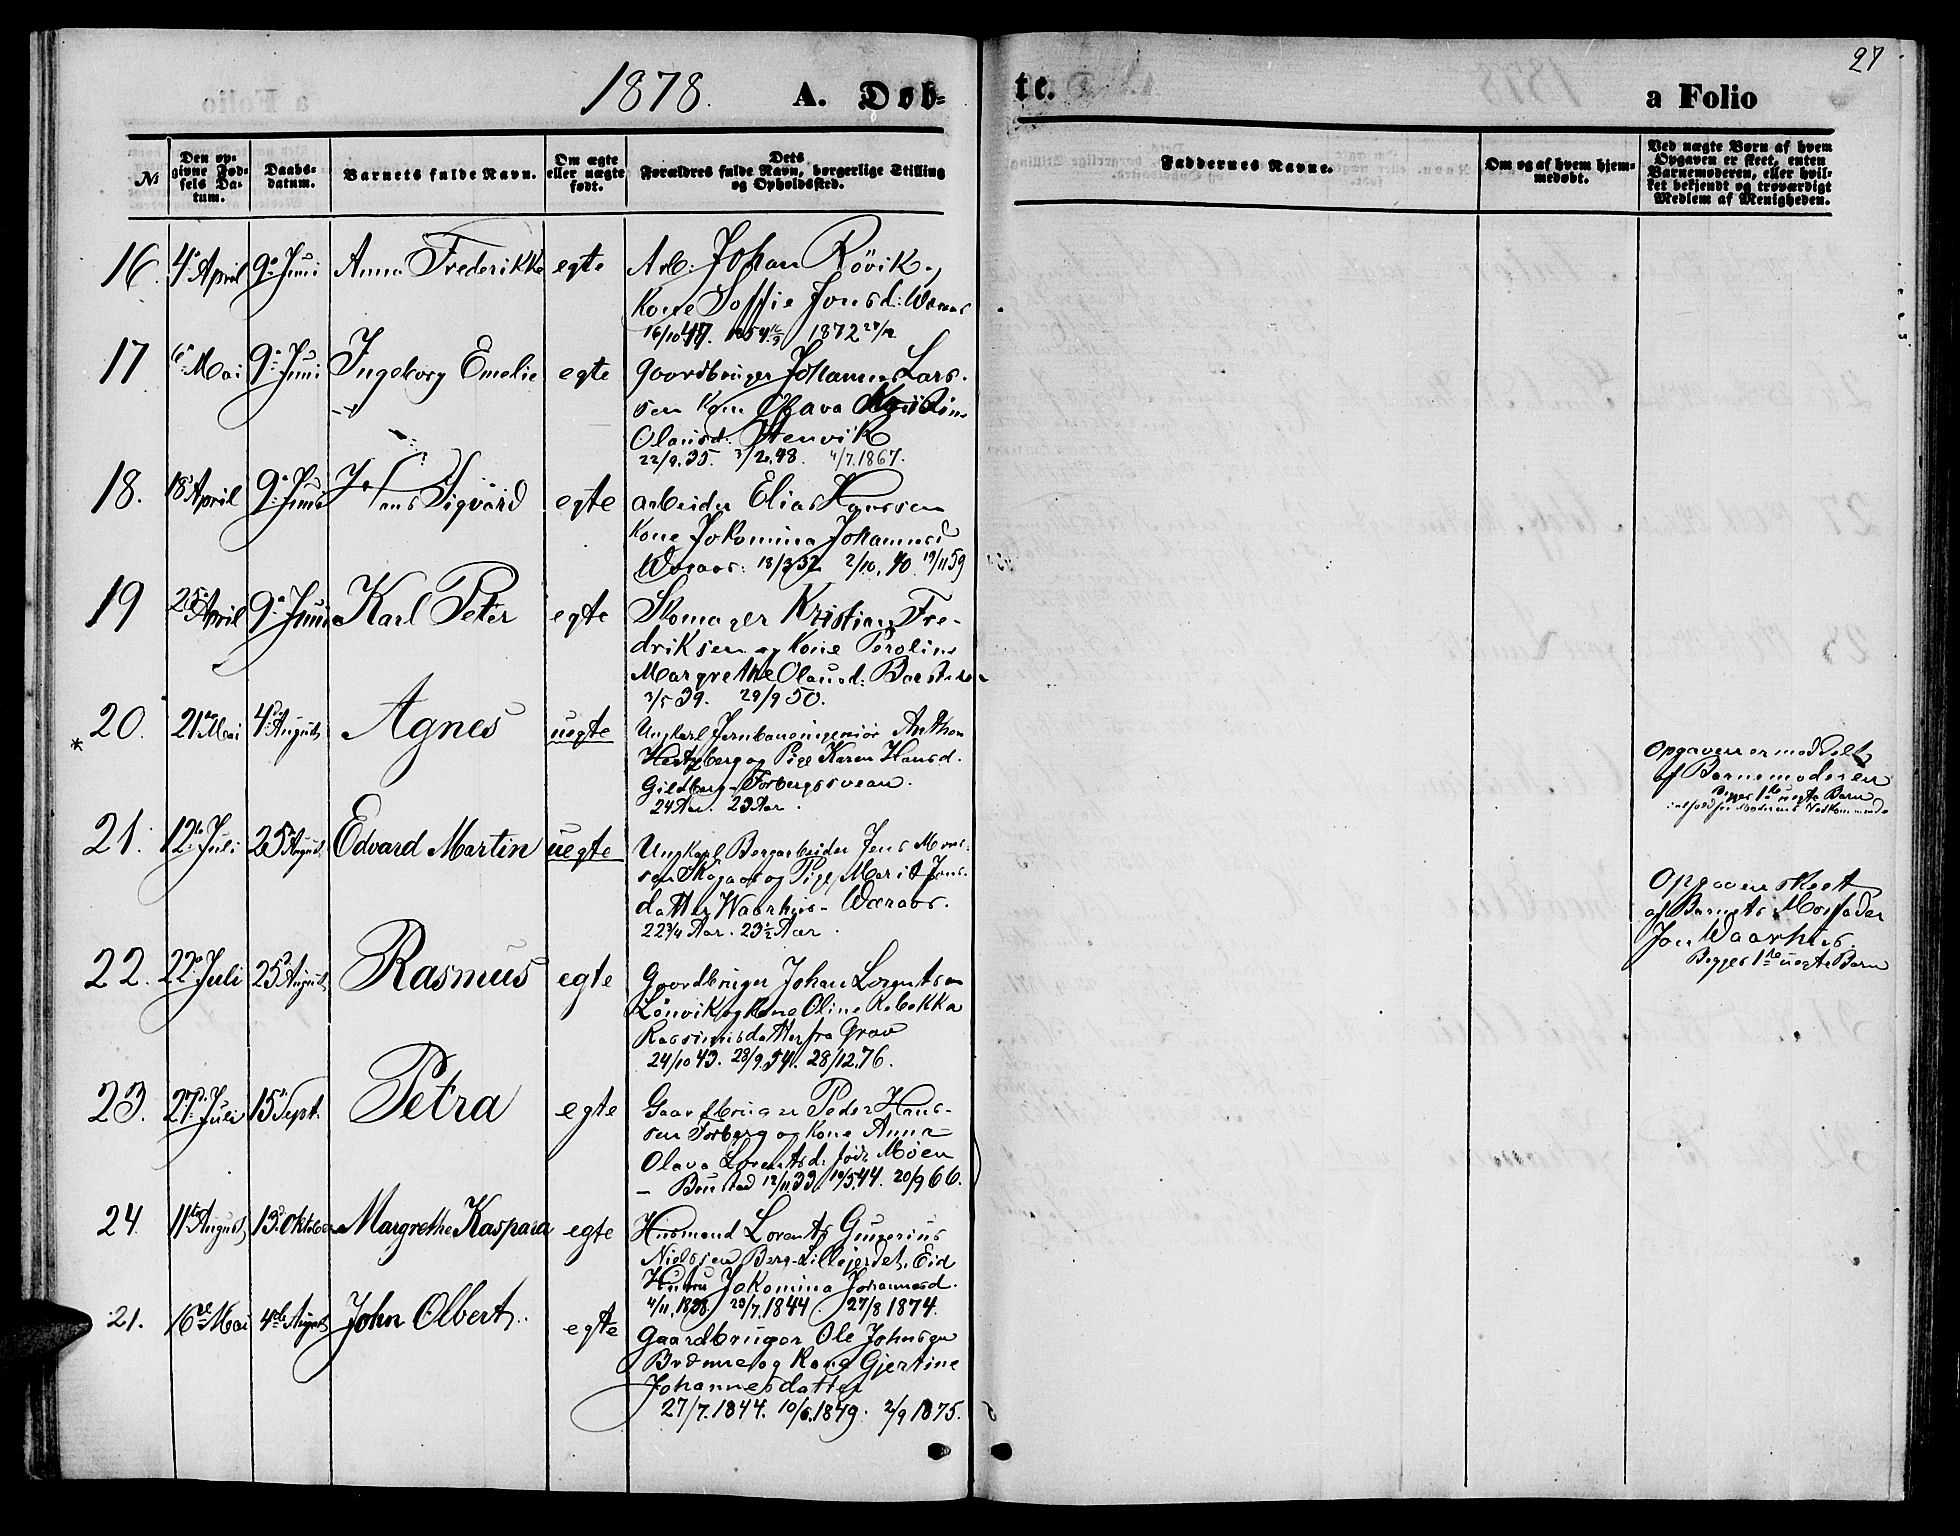 1878. A. Døb=
te.
27
a Folio
№
Den op=
givne Fød=
sels Da=
tum.
Daabs=
datum.
Barnets fulde Navn.
Om ægte
eller uægte
født.
Dets
Forældres fulde Navn, borgerlige Stilling
og Opholdssted.
Faddernes Navne.
Om og af hvem hjem=
medøbt.
Ved uægte Børn af hvem
Opgaven er skeet, enten
Barnemoderen, eller hvil=
ket bekjendt og troværdigt
Medlem af Menigheden.
16. 4de April 9de Juni Anna Frederikke egte Arb: Johan Rövik,
Kone Soffie Jonsd: Woraas
16/10 47. 1872 27/12
17 Mai 9de Juni Ingeborg Emelie egte Goordbruger Johannes Lars-
sen Kone Olava
Olausd: Stenvik
22/9.35. 4/7.1867.
18. 18de April 9de Juni Jens Sigvard egte arbeider Elias Hanssen
Kone Jokomina Johannesd
Woraas: 2/10.40 19/11 59
19 25de April 9de Juni Karl Peter egte Skomager Kristian Fre-
driksen og Kone Peroline
Margrethe Olausd:
3/5 39. 29/9 50.
* 20. 21de Mai 4de August Agnes uegte Ungkarl Jernbaneingeniör Anthon
Hertzberg og Pige Karen Hansd.
Gildberg - Forbergssvean.
24 Aar. 23 Aar.
Opgaven er meddelt
af Barnemoderen
Begges 1ste uegte Barn
21. 12te Juli 25de August Edvard Martin uegte Ungkarl Bergarbeider Jens Mons-
sen Skogaas og Pige Marit Jons-
datter Waarhus - Woraas.
22 3/4 Aar. 23 1/2 Aar.
Opgaven skeet
af Barnets Morfader
Jon Waarhus.
Begges 1ste uegte Barn
22. 22de Juli 25de August Rasmus egte Goordbruger Johan Lorentsen
Lönvik og Kone Oline Rebekka
Rassmusdatter fra Grav
24/10 43. 28/9.54. 28/12.76.
23. 27de Juli 15de Sept. Petra egte Gaardbruger Peder Hans-
sen Forberg og Kone Anna
Olava Lorentsd: föd: Möen
- 12/11 33 19/5 44. 20/9 66.
24. 11te August 13de Oktober Margrethe Kaspara egte Husmand Lorents Gunerius
Nielssen Berg-Lillejerdet, Eid
Hustru Jokomina Johannesd.
4/11.1838 29/7.1844. 27/8 1874.
21. 16de Mai 4de August John Olbert. egte Gaardbruger Ole Johnsen
Brænne og Kone Gjertine
Johannesdatter
27/7.1844. 10/6.1849. 2/9 1875.